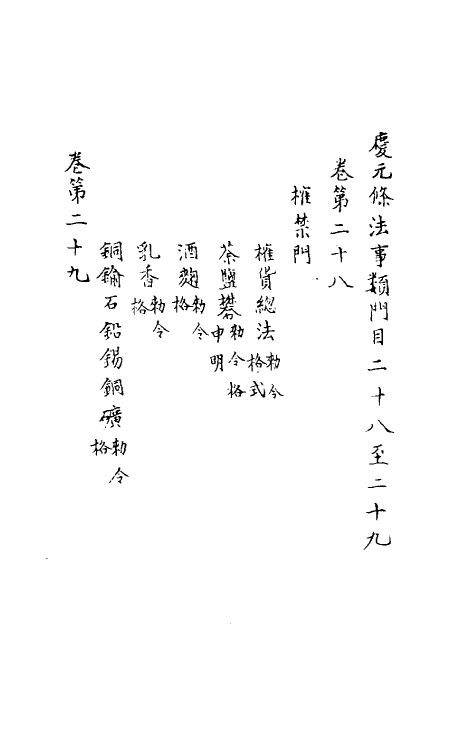 慶元條法事類門目二十八至二十九
卷第二十八
榷禁門
榷貨總法勅令格式
茶鹽礬勅令格申明
酒麴勅令格
乳香勅令格
銅鍮石鉛錫銅礦勅令格
卷第二十九